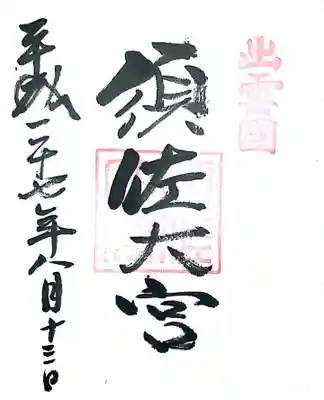 出雲國
須佐大宮
平成二十七年八月十三日